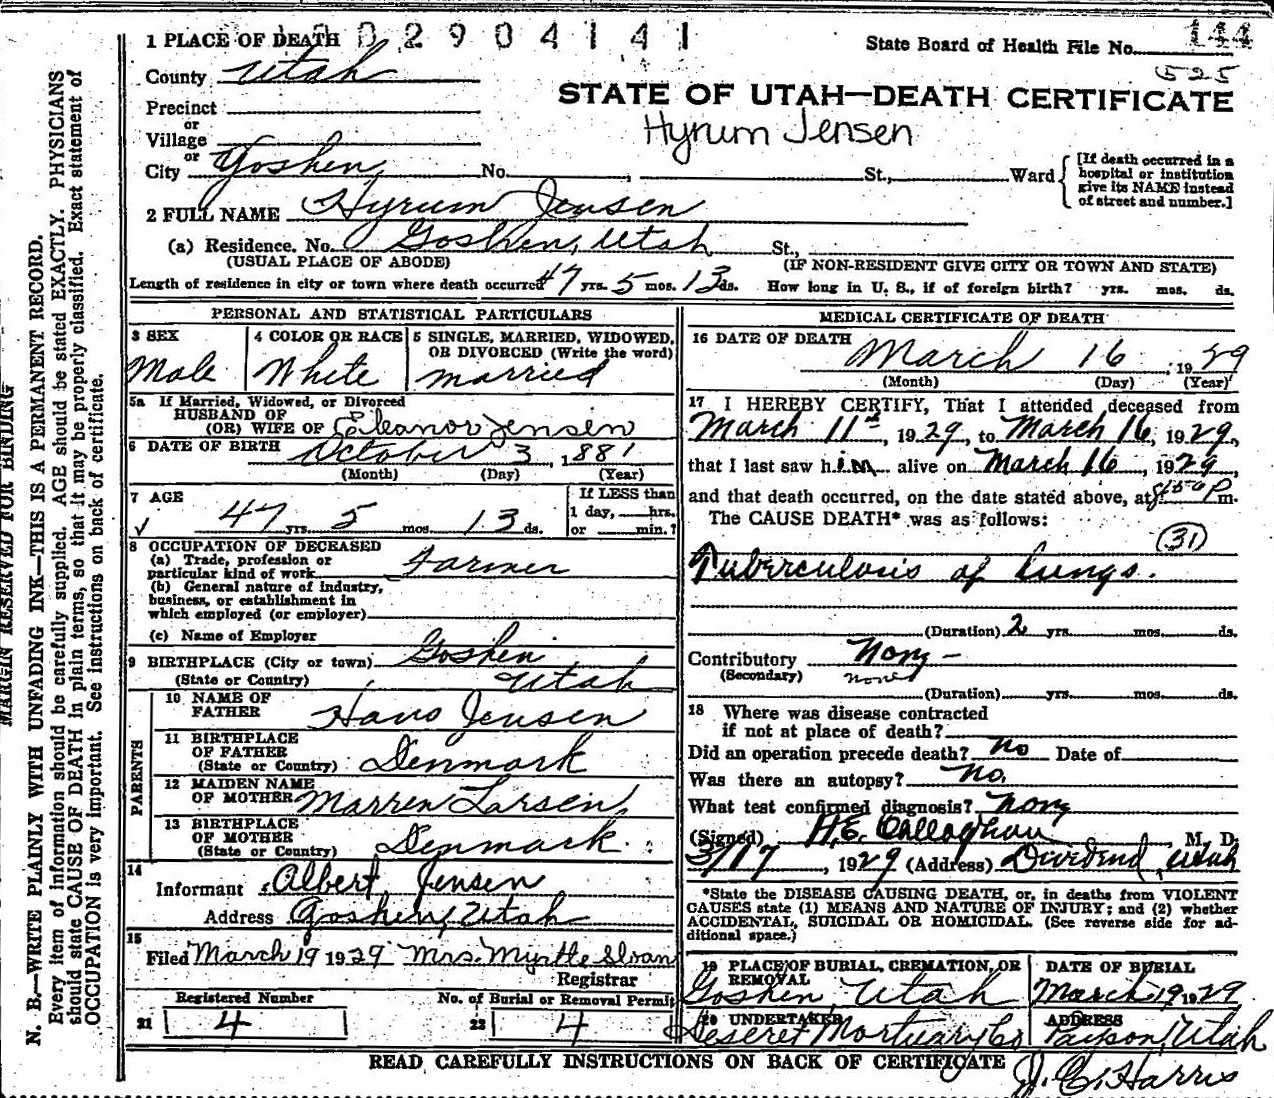 0 2 9 0 4 1 4 1
1 PLACE OF DEATH
State Board of Health File No. 144
525
County Utah
STATE OF UTAH—DEATH CERTIFICATE
Hyrum Jensen
Precinct
or
Village
or
City Goshen, No. , St., Ward
[If death occurred in a
hospital or institution
give its NAME instead
of street and number.]
2 FULL NAME Hyrum Jensen
(a) Residence. No. Goshen, Utah St.,
(USUAL PLACE OF ABODE) (IF NON-RESIDENT GIVE CITY OR TOWN AND STATE)
Length of residence in city or town where death occurred 47 yrs. 5 mos. 13 ds. How long in U. S., if of foreign birth? yrs. mos. ds.
PERSONAL AND STATISTICAL PARTICULARS
3 SEX
Male
4 COLOR OR RACE
White
5 SINGLE, MARRIED, WIDOWED,
OR DIVORCED (Write the word)
married
5a If Married, Widowed, or Divorced
HUSBAND OF
(OR) WIFE OF Eleanor Jensen
6 DATE OF BIRTH October 3, 1881
(Month) (Day) (Year)
7 AGE
47 yrs. 5 mos. 13 ds.
If LESS than
1 day, hrs.
or min.?
8 OCCUPATION OF DECEASED
(a) Trade, profession or
particular kind of work Farmer
(b) General nature of industry,
business, or establishment in
which employed (or employer)
(c) Name of Employer
9 BIRTHPLACE (City or town) Goshen
(State or Country) Utah
PARENTS
10 NAME OF
FATHER Hans Jensen
11 BIRTHPLACE
OF FATHER
(State or Country) Denmark
12 MAIDEN NAME
OF MOTHER Marren Larsen
13 BIRTHPLACE
OF MOTHER
(State or Country) Denmark
14
Informant Albert Jensen
Address Goshen, Utah
15
Filed March 19 1929 Mrs. Myrtle Sloan
Registrar
Registered Number
21 4
No. of Burial or Removal Permit
22 4
MEDICAL CERTIFICATE OF DEATH
16 DATE OF DEATH
March 16, 1929
(Month) (Day) (Year)
17 I HEREBY CERTIFY, That I attended deceased from
March 11th, 1929, to March 16, 1929,
that I last saw him alive on March 16, 1929,
and that death occurred, on the date stated above, at 8:50 P m.
The CAUSE DEATH* was as follows:
(31)
Tuberculosis of Lungs.
(Duration) 2 yrs. mos. ds.
Contributory None -
(Secondary) none
(Duration) yrs. mos. ds.
18 Where was disease contracted
if not at place of death?
Did an operation precede death? No Date of
Was there an autopsy? No.
What test confirmed diagnosis? None
(Signed) H.E. Callaghan, M. D.
3/17, 1929 (Address) Dividend, Utah
*State the DISEASE CAUSING DEATH, or, in deaths from VIOLENT
CAUSES state (1) MEANS AND NATURE OF INJURY; and (2) whether
ACCIDENTAL, SUICIDAL OR HOMICIDAL. (See reverse side for ad-
ditional space.)
19 PLACE OF BURIAL, CREMATION, OR
REMOVAL
Goshen, Utah
DATE OF BURIAL
March 19 1929
20 UNDERTAKER
Deseret Mortuary Co
ADDRESS
Payson, Utah
READ CAREFULLY INSTRUCTIONS ON BACK OF CERTIFICATE
J. C. Harris
MARGIN RESERVED FOR BINDING
N. B.—WRITE PLAINLY WITH UNFADING INK—THIS IS A PERMANENT RECORD.
Every item of information should be carefully supplied. AGE should be stated EXACTLY. PHYSICIANS
should state CAUSE OF DEATH in plain terms, so that it may be properly classified. Exact statement of
OCCUPATION is very important. See instructions on back of certificate.